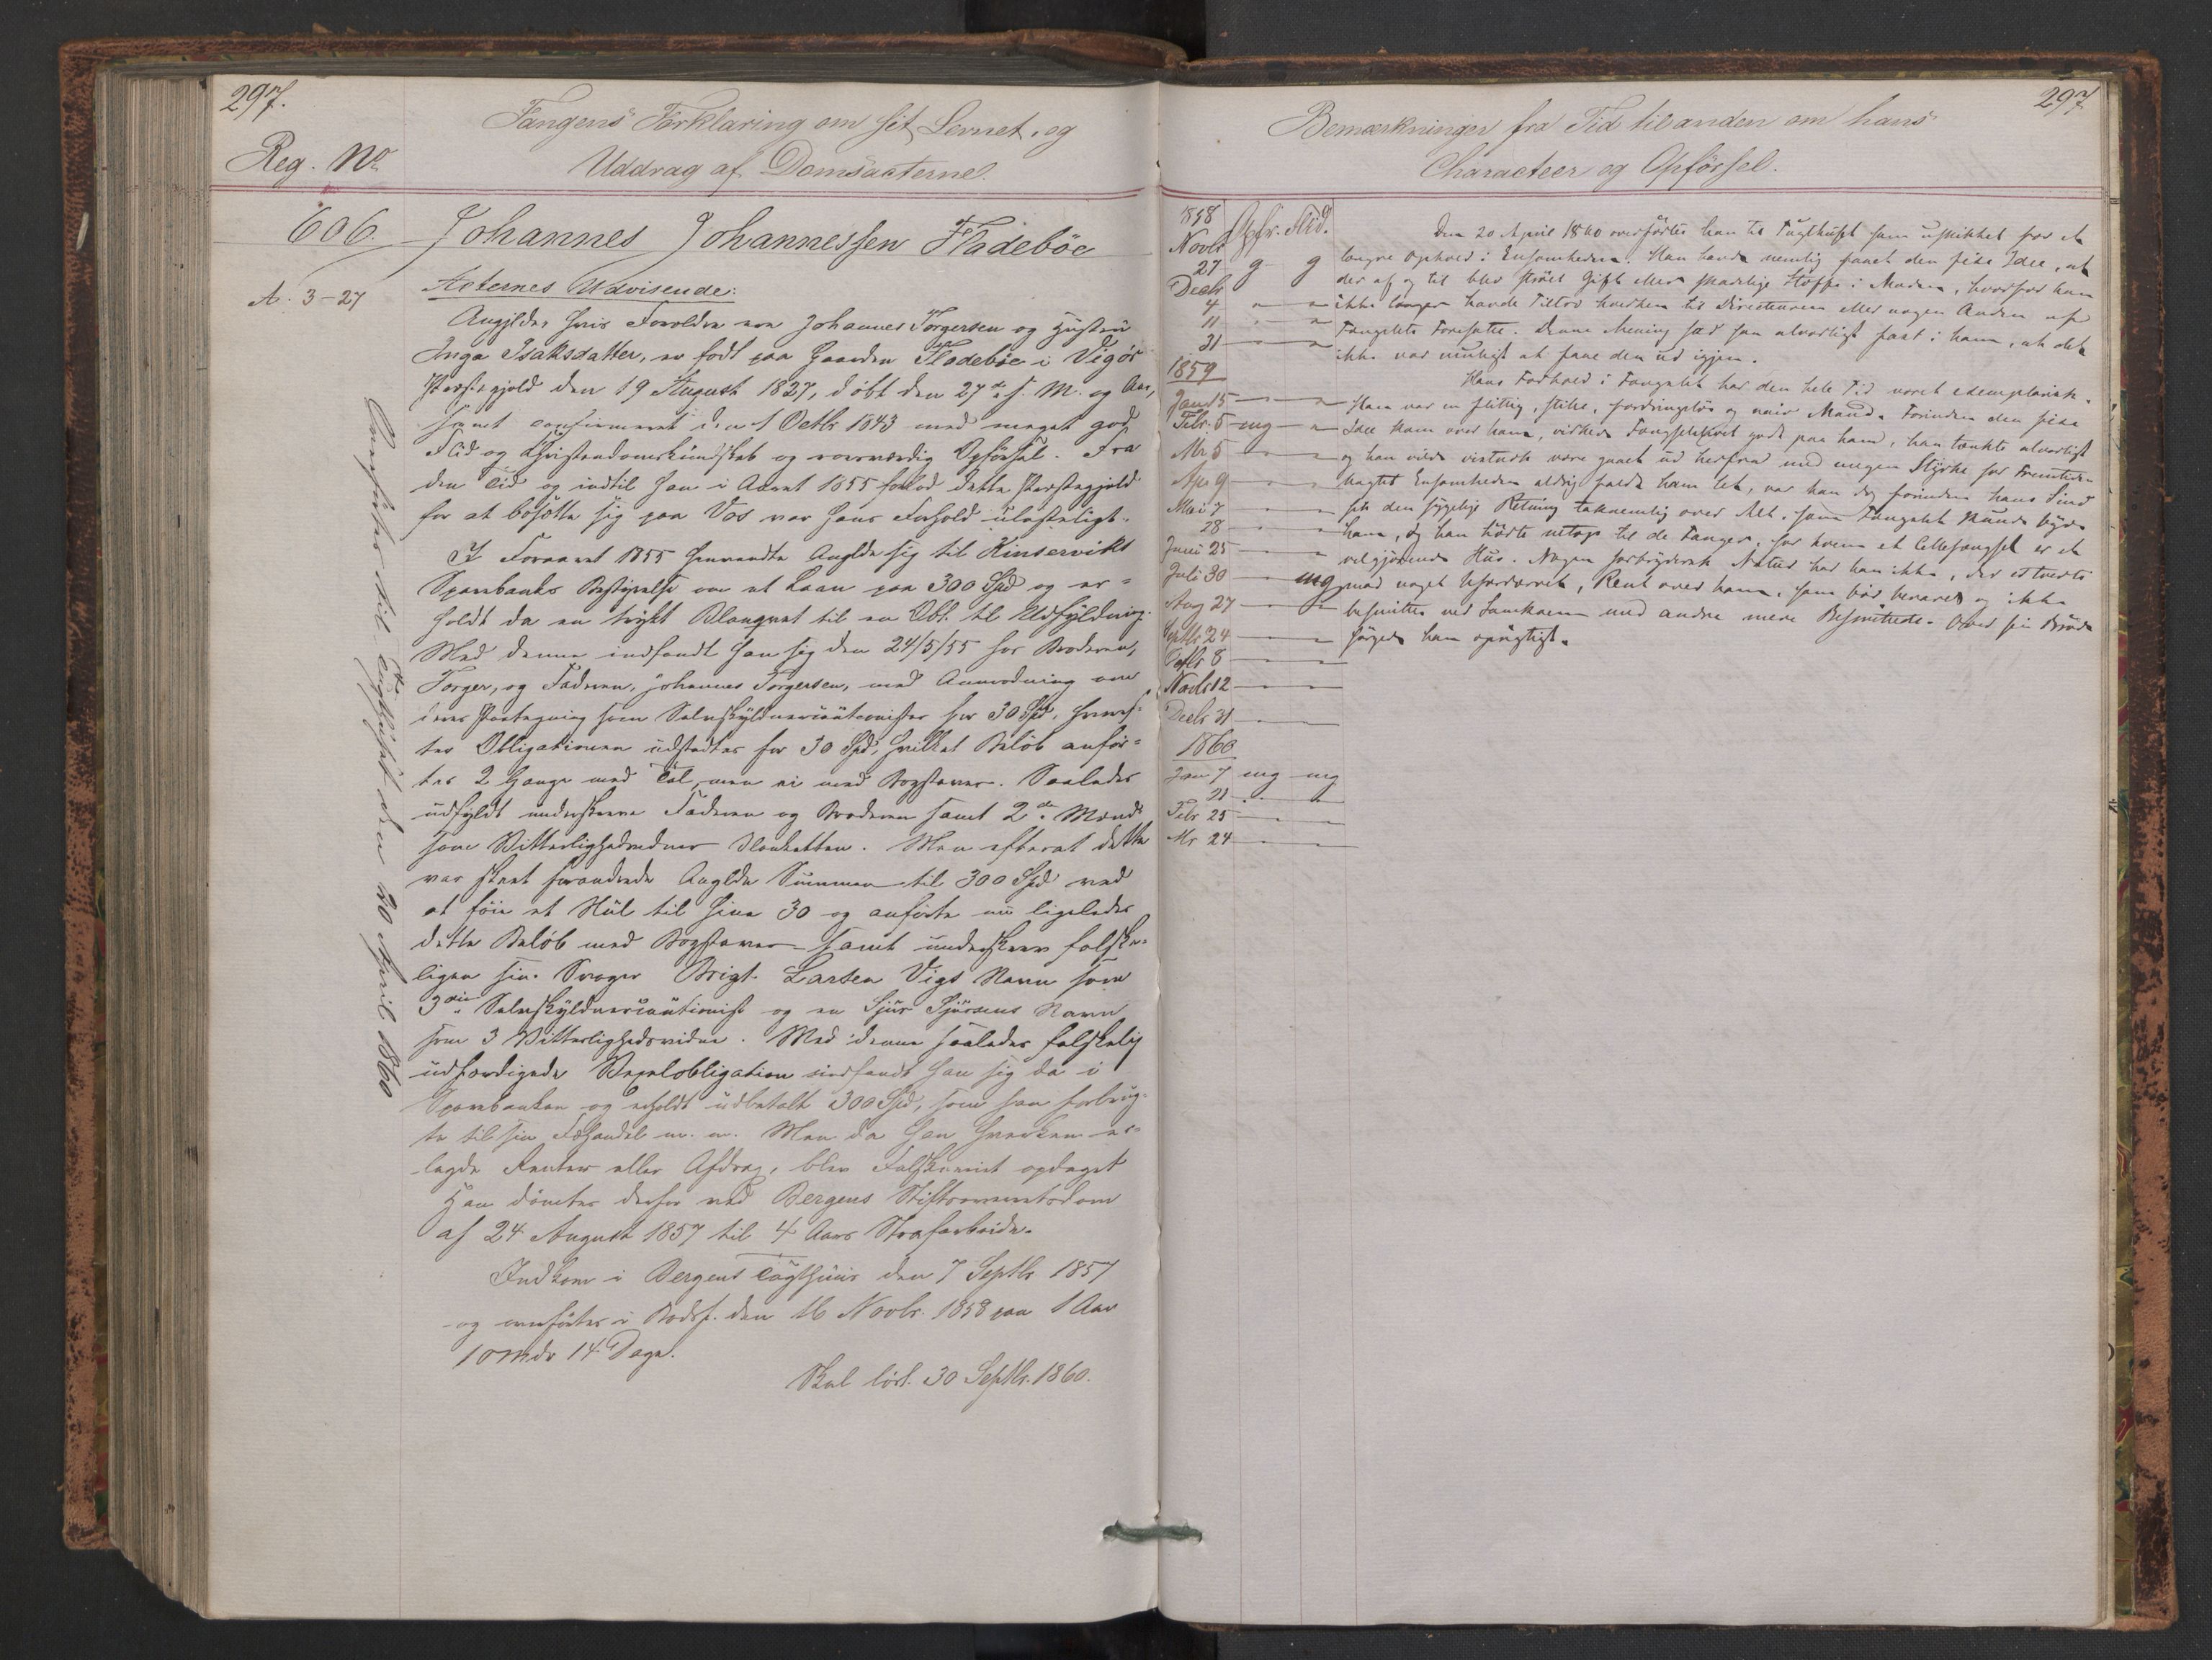 297.
Reg. No
Fangens Forklaring om sit Levnet, og
Uddrag af Domsacterne.
606. Johannes Johannessen Fladebøe
A. 3-27
Acternes Udvisende:
Angjældn, hvis Forældre ere Johannes Torgersen og Hustru
Inga Isaksdatter, er født paa Gaarden Fladebøe i Vigørs
Præstegjeld den 19 August 1827, døbt den 27de s. M. og Aar,
samt confirmeret den 1 Octbr 1843 med meget god
Flid og Christendomskundskab og roesværdig Opførsel. Fra
den Tid og indtil han i Aaret 1855 forlod dette Præstegjeld
for at bosætte sig paa Vos var hans Forhold ulasteligt.
I Foraaret 1855 henvendte Anglde sig til Kinserviks
Sparebanks Bestyrelse om et Laan paa 300 Spd og er=
holdt da en trykt Blanquet til en Obl. til Udfyldning.
Med denne indfandt han sig den 24/5/55 hos Broderen,
Torger, og Faderen, Johannes Torgersen, med Anmodning om
deres Paategning som Selvskyldnercautionister for 30 Spd, hvoref=
ter Obligationen udstedtes for 30 Spd, hvilket Beløb anfør=
tes 2 Gange med Tal, men ei med Bogstaver. Saaledes
udfyldt underskreve Faderen og Broderen samt 2de Mænd
som Vitterlighedsvidner Blanketten. Men efterat dette
var skeet forandrede Anglde Summen til 300 Spd ved
at føie et Nul til hine 30 og anførte nu ligeledes
dette Beløb med Bogstaver samt underskrev falske=
ligen sin Svoger Brigt Larsen Vigs Navn som
3die Selvskyldnercautionist og en Sjur Sjursens Navn
som 3 Vitterlighedsvidne. Med denne saaledes falskelig
udfærdigede Vexelobligation indfandt han sig da i
Sparebanken og erholdt udbetalt 300 Spd, som han forbrug=
te til sin Fæhandel m. m. Men da han hverken er=
lagde Renter eller Afdrag, blev Falskneriet opdaget
Han dømtes derfor ved Bergens Stiftsoverretsdom
af 24 August 1857 til 4 Aars Strafarbeide.
Indkom i Bergens Tugthuus den 7 Septbr 1857
og overførtes i Bodsf. den 16 Novbr. 1858 paa 1 Aar
10 Mdr 14 Dage.
Skal løsl. 30 Septbr. 1860.
Overførtes til Tugthuset den 20 April 1860
297
Bemærkninger fra Tid til anden om hans
Characteer og Opførsel.
1858 Opfr. Flid.
Novbr
27 g g
Decbr
4 " "
11 " "
31 " "
1859
Janr 15 " "
Febr. 5 mg "
Mr 5 " "
Apr 9 " "
Mai 7 " "
28 " "
Juni 25 " "
Juli 30 " mg
Aug 27 " "
Septbr 24 " "
Octbr 8 " "
Novbr 12 " "
Decbr 31 " "
1860
Jan 7 mg mg
21 " "
Febr 25 " "
Mr 24 " "
Den 20 April 1860 overførtes han til Tugthuset som uskikket for et
længre Ophold i Ensomheden. Han havde nemlig faaet den fixe Idee, at
der af og til blev strøet Gift eller skadelige Stoffe i Maden, hvorfor han
ikke længer havde Tiltro hverken til Directeuren eller nogen Anden af
Fængslets Foresatte. Denne Mening sad saa alvorligt fast i ham, at det
ikke var muligt at faae den ud igjen.
Hans Forhold i Fængslet har den hele Tid været exemplarisk.
Han var en flittig, stille, fordringsløs og naiv Mand. Forinden den fixe
Idee kom over ham, virkede Fængselslivet godt paa ham, han tænkte alvorligt
og han vilde vistnok være gaaet ud herfra med megen Styrke for Fremtiden
uagtet Ensomheden aldrig faldt ham let, var han dog forinden hans Sind
fik den sygelige Retning taknemlig over Alt, som Fængslet kunde byde
ham, og han hørte netop til de Fanger, for hvem et Cellefængsel er et
velgjørende Hus. Nogen forbrydersk Natur har han ikke, der er tverti
mod noget ufordærvet, Reent over ham, som bør bevares og ikke
besmittes ved Samkvem med andre mere Besmittede. Over sin Brøde
sørgede han oprigtigt.